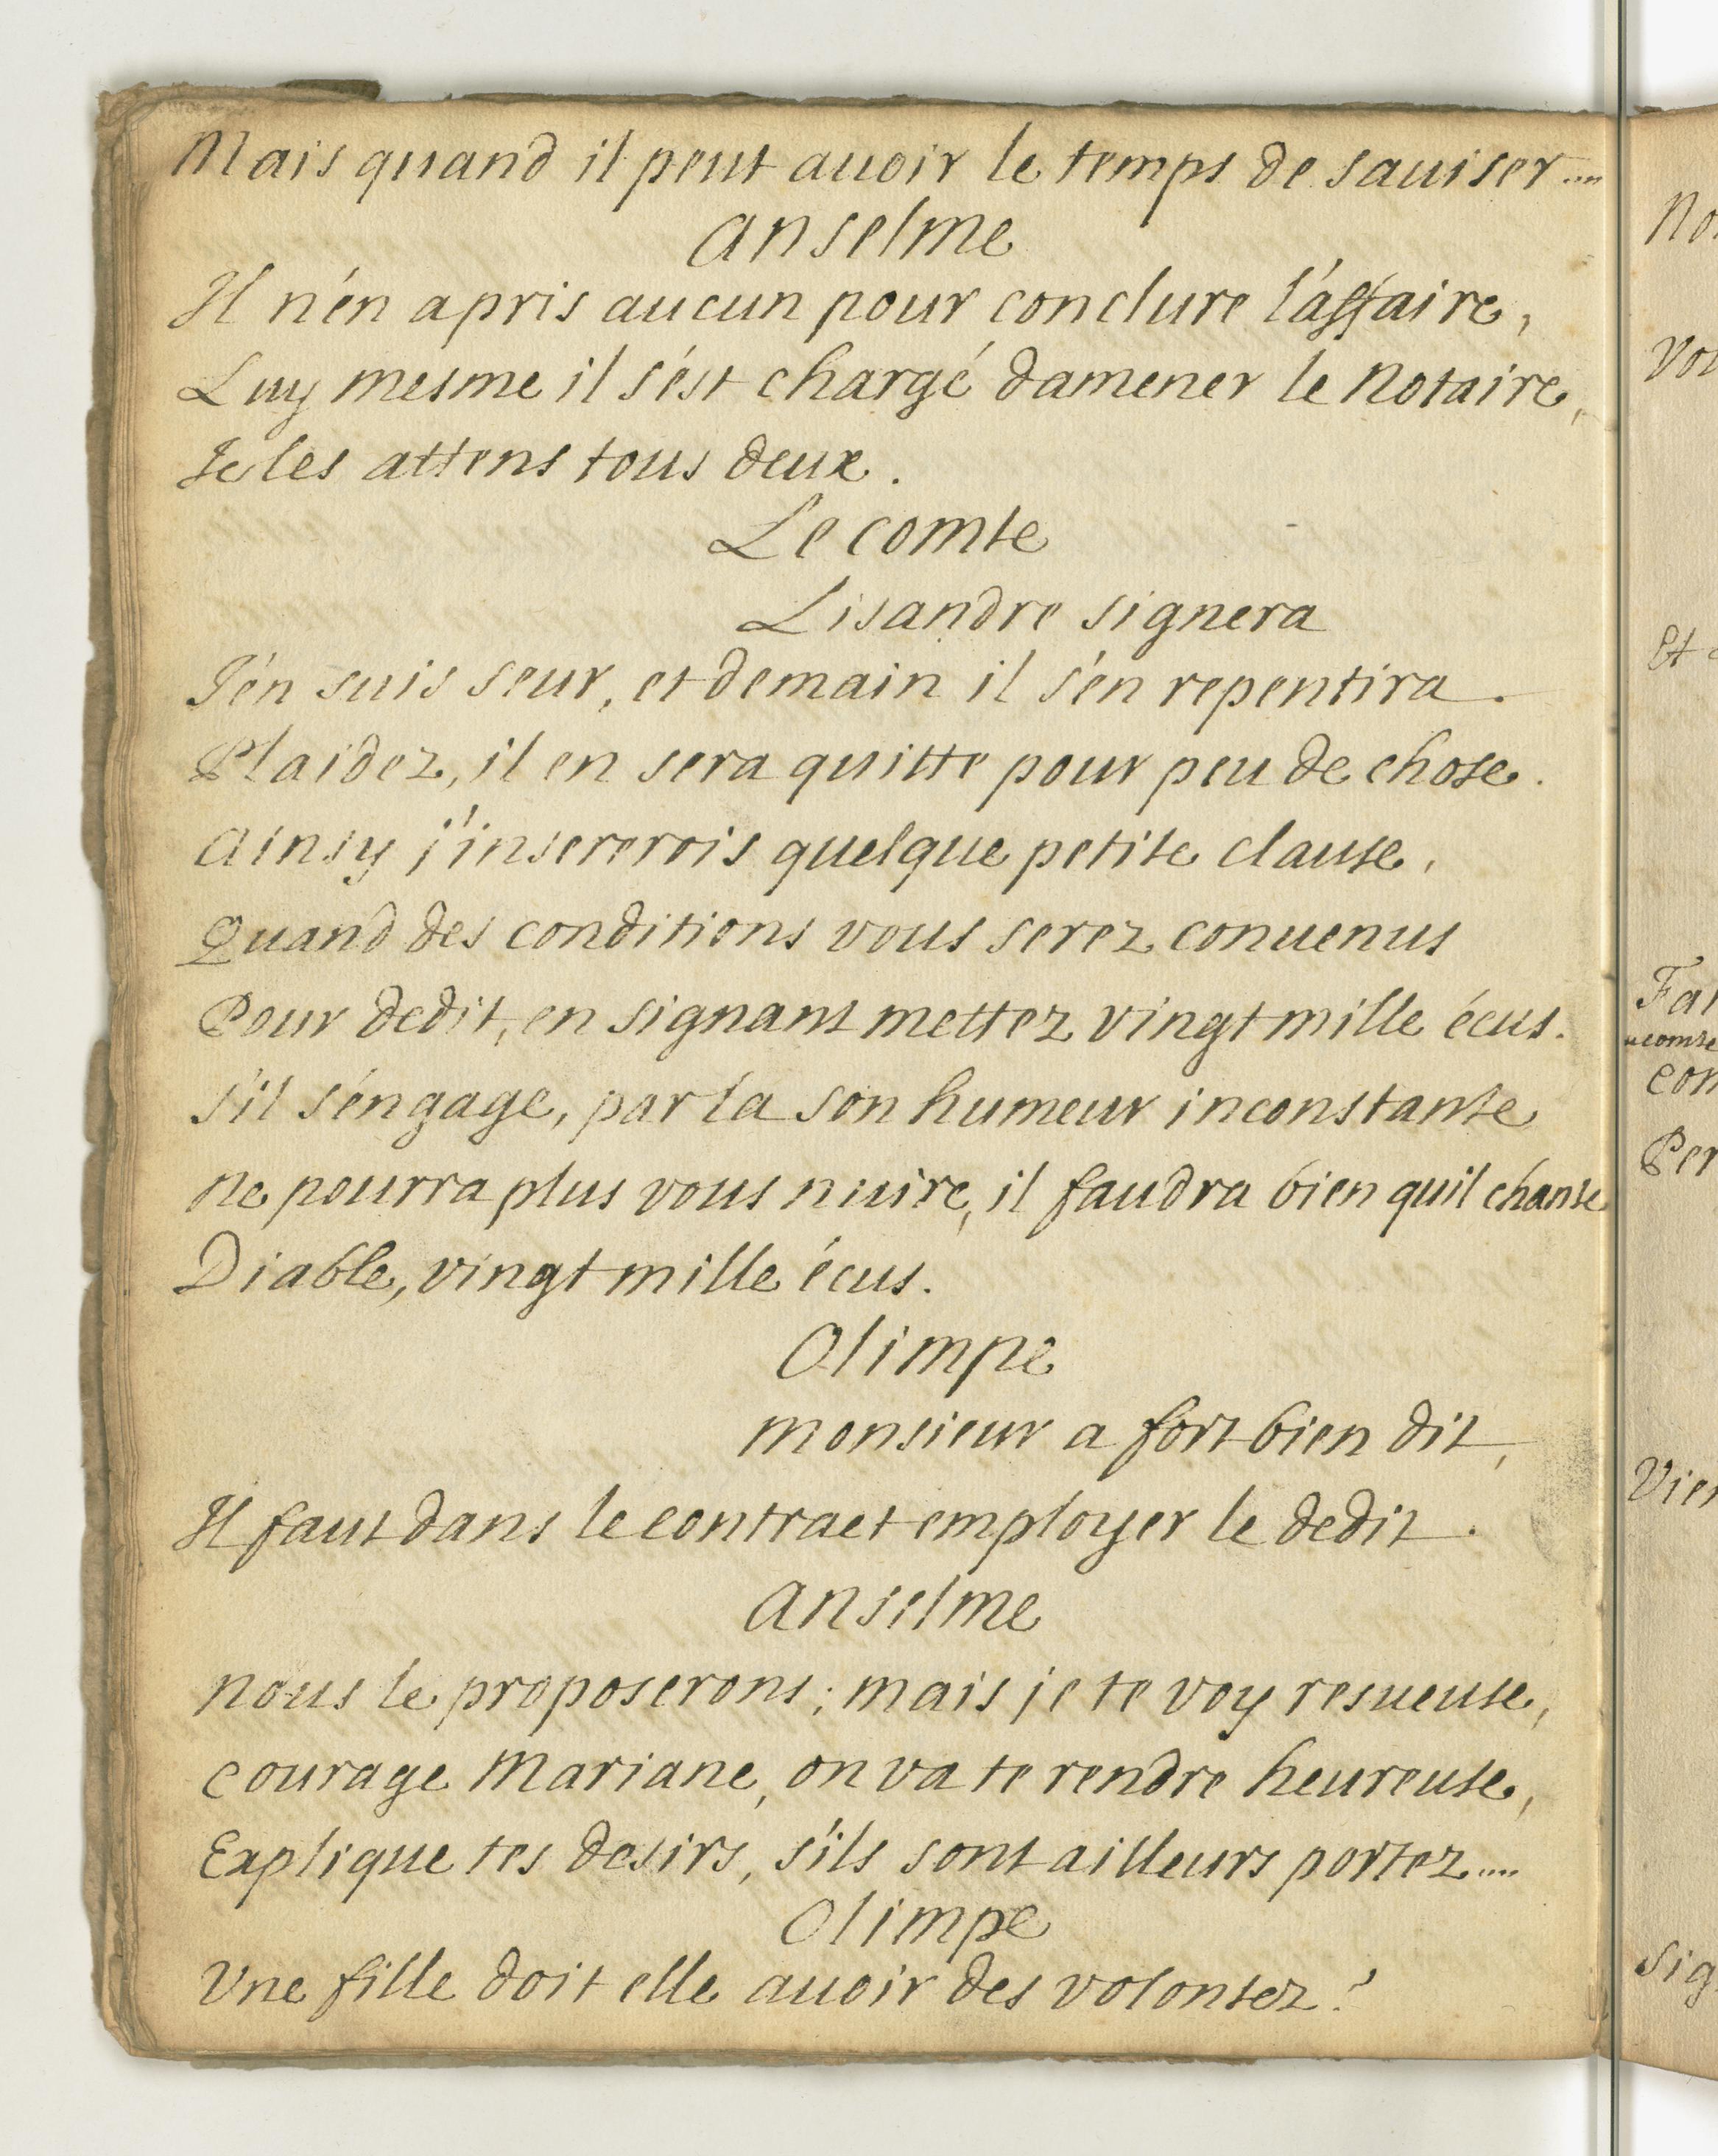 Mais quand il peut auoir le temps de sauiser....
Anselme
Il n'én a pris aucun pour conclure l'áffaire,
Luy mesme il s'ést chargé damener le Notaire,
Je les attens tous deux.
Le comte
Lisandre signera
J'én suis seur, et demain il s'én repentira.
Plaidez, il en sera quitte pour peu de chose.
Ainsy j'insererois quelque petite clause,
Quand des conditions vous serez conuenus
Pour dedit, en signant mettez vingt mille écus.
S'il s'éngage, par la son humeur inconstante
Ne pourra plus vous nuire, il faudra bien quil chante
Diable, vingt mille écus.
Olimpe
Monsieur a fort bien dit,
Il faut dans le contract employer le dedit.
Anselme
Nous le proposerons; mais je te voy resueuse,
Courage Mariane, on va te rendre heureuse,
Explique tes desirs, s'ils sont ailleurs portez....
Olimpe
Une fille doit elle auoir des volontez?
Vou
Et
Fai
Sig